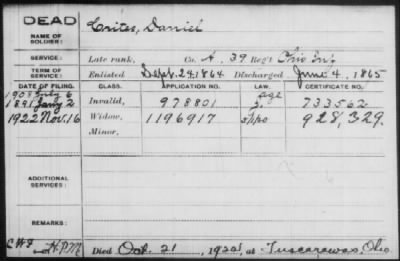 DEAD
NAME OF SOLDIER:
Crites, Daniel
SERVICE:
Late rank, Co. A, 39 Reg't Ohio Inf
TERM OF SERVICE:
Enlisted Sept. 24, 1864 Discharged June 4, 1865
DATE OF FILING. CLASS. APPLICATION NO. LAW. CERTIFICATE NO.
age
1891 Jany 2 Invalid, 978801 733562
1922 Nov. 16 Widow, 1196917 5/1/20 928,329.
Minor,
ADDITIONAL SERVICES:
REMARKS:
Died Oct. 21, 1922, at Tuscarawas, Ohio